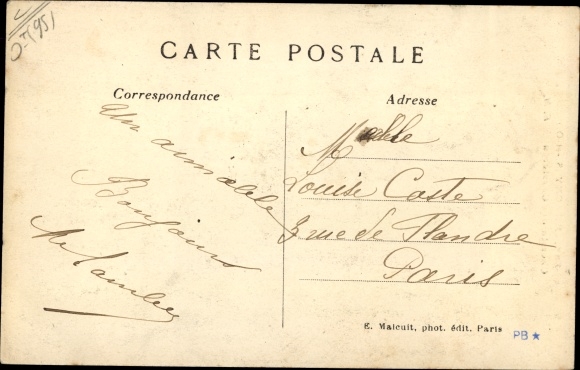 CARTE POSTALE
Correspondance
Un aimable
Bonjour
Adresse
Louise Caste
3 rue de Flandre
Paris
E. Malcuit, phot. édit. Paris
PB ★